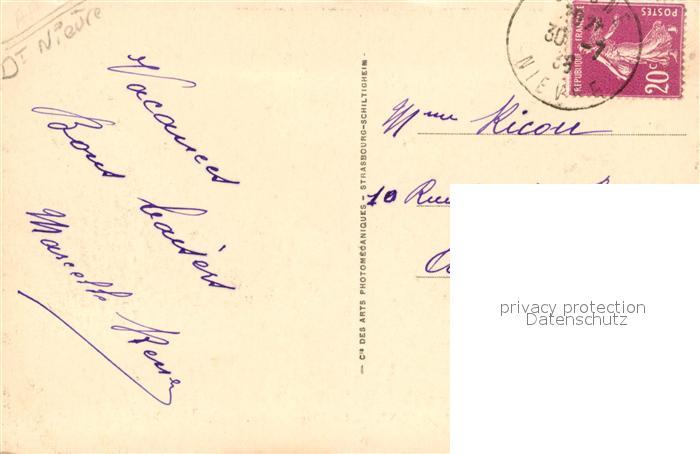 Dt Nièvre
Vacances
Bons baisers
Marcelle
Cie DES ARTS PHOTOMÉCANIQUES - STRASBOURG-SCHILTIGHEIM
30 -7
NIEVRE
POSTES
REPUBLIQUE FRANÇAISE
20c
Mme Ricou
10 Rue
privacy protection
Datenschutz